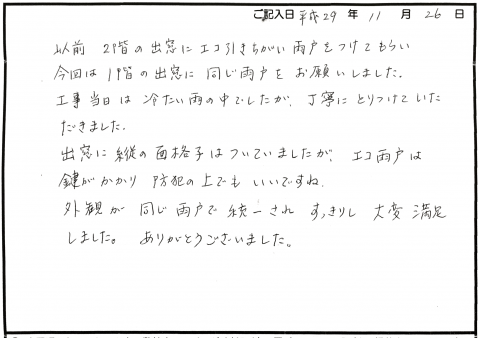 ご記入日 平成29年11月26日
以前 2階の出窓にエコ引きちがい雨戸をつけてもらい
今回は1階の出窓に同じ雨戸をお願いしました.
工事当日は冷たい雨の中でしたが、丁寧にとりつけていた
だきました.
出窓に縦の面格子はついていましたが、エコ雨戸は
鍵がかかり防犯の上でもいいですね.
外観が同じ雨戸で統一されすっきりし大変満足
しました。ありがとうございました。